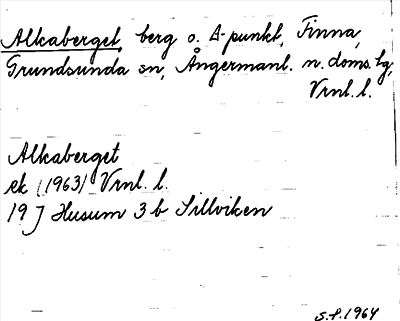 Alkaberget, berg o. Δ-punkt, Finna,
Grundsunda sn, Ångermanl. n. doms. tg,
Vrnl. l.
Alkaberget
ek (1963) Vrnl. l.
19 J Husum 3 b Sillviken
S.f. 1964